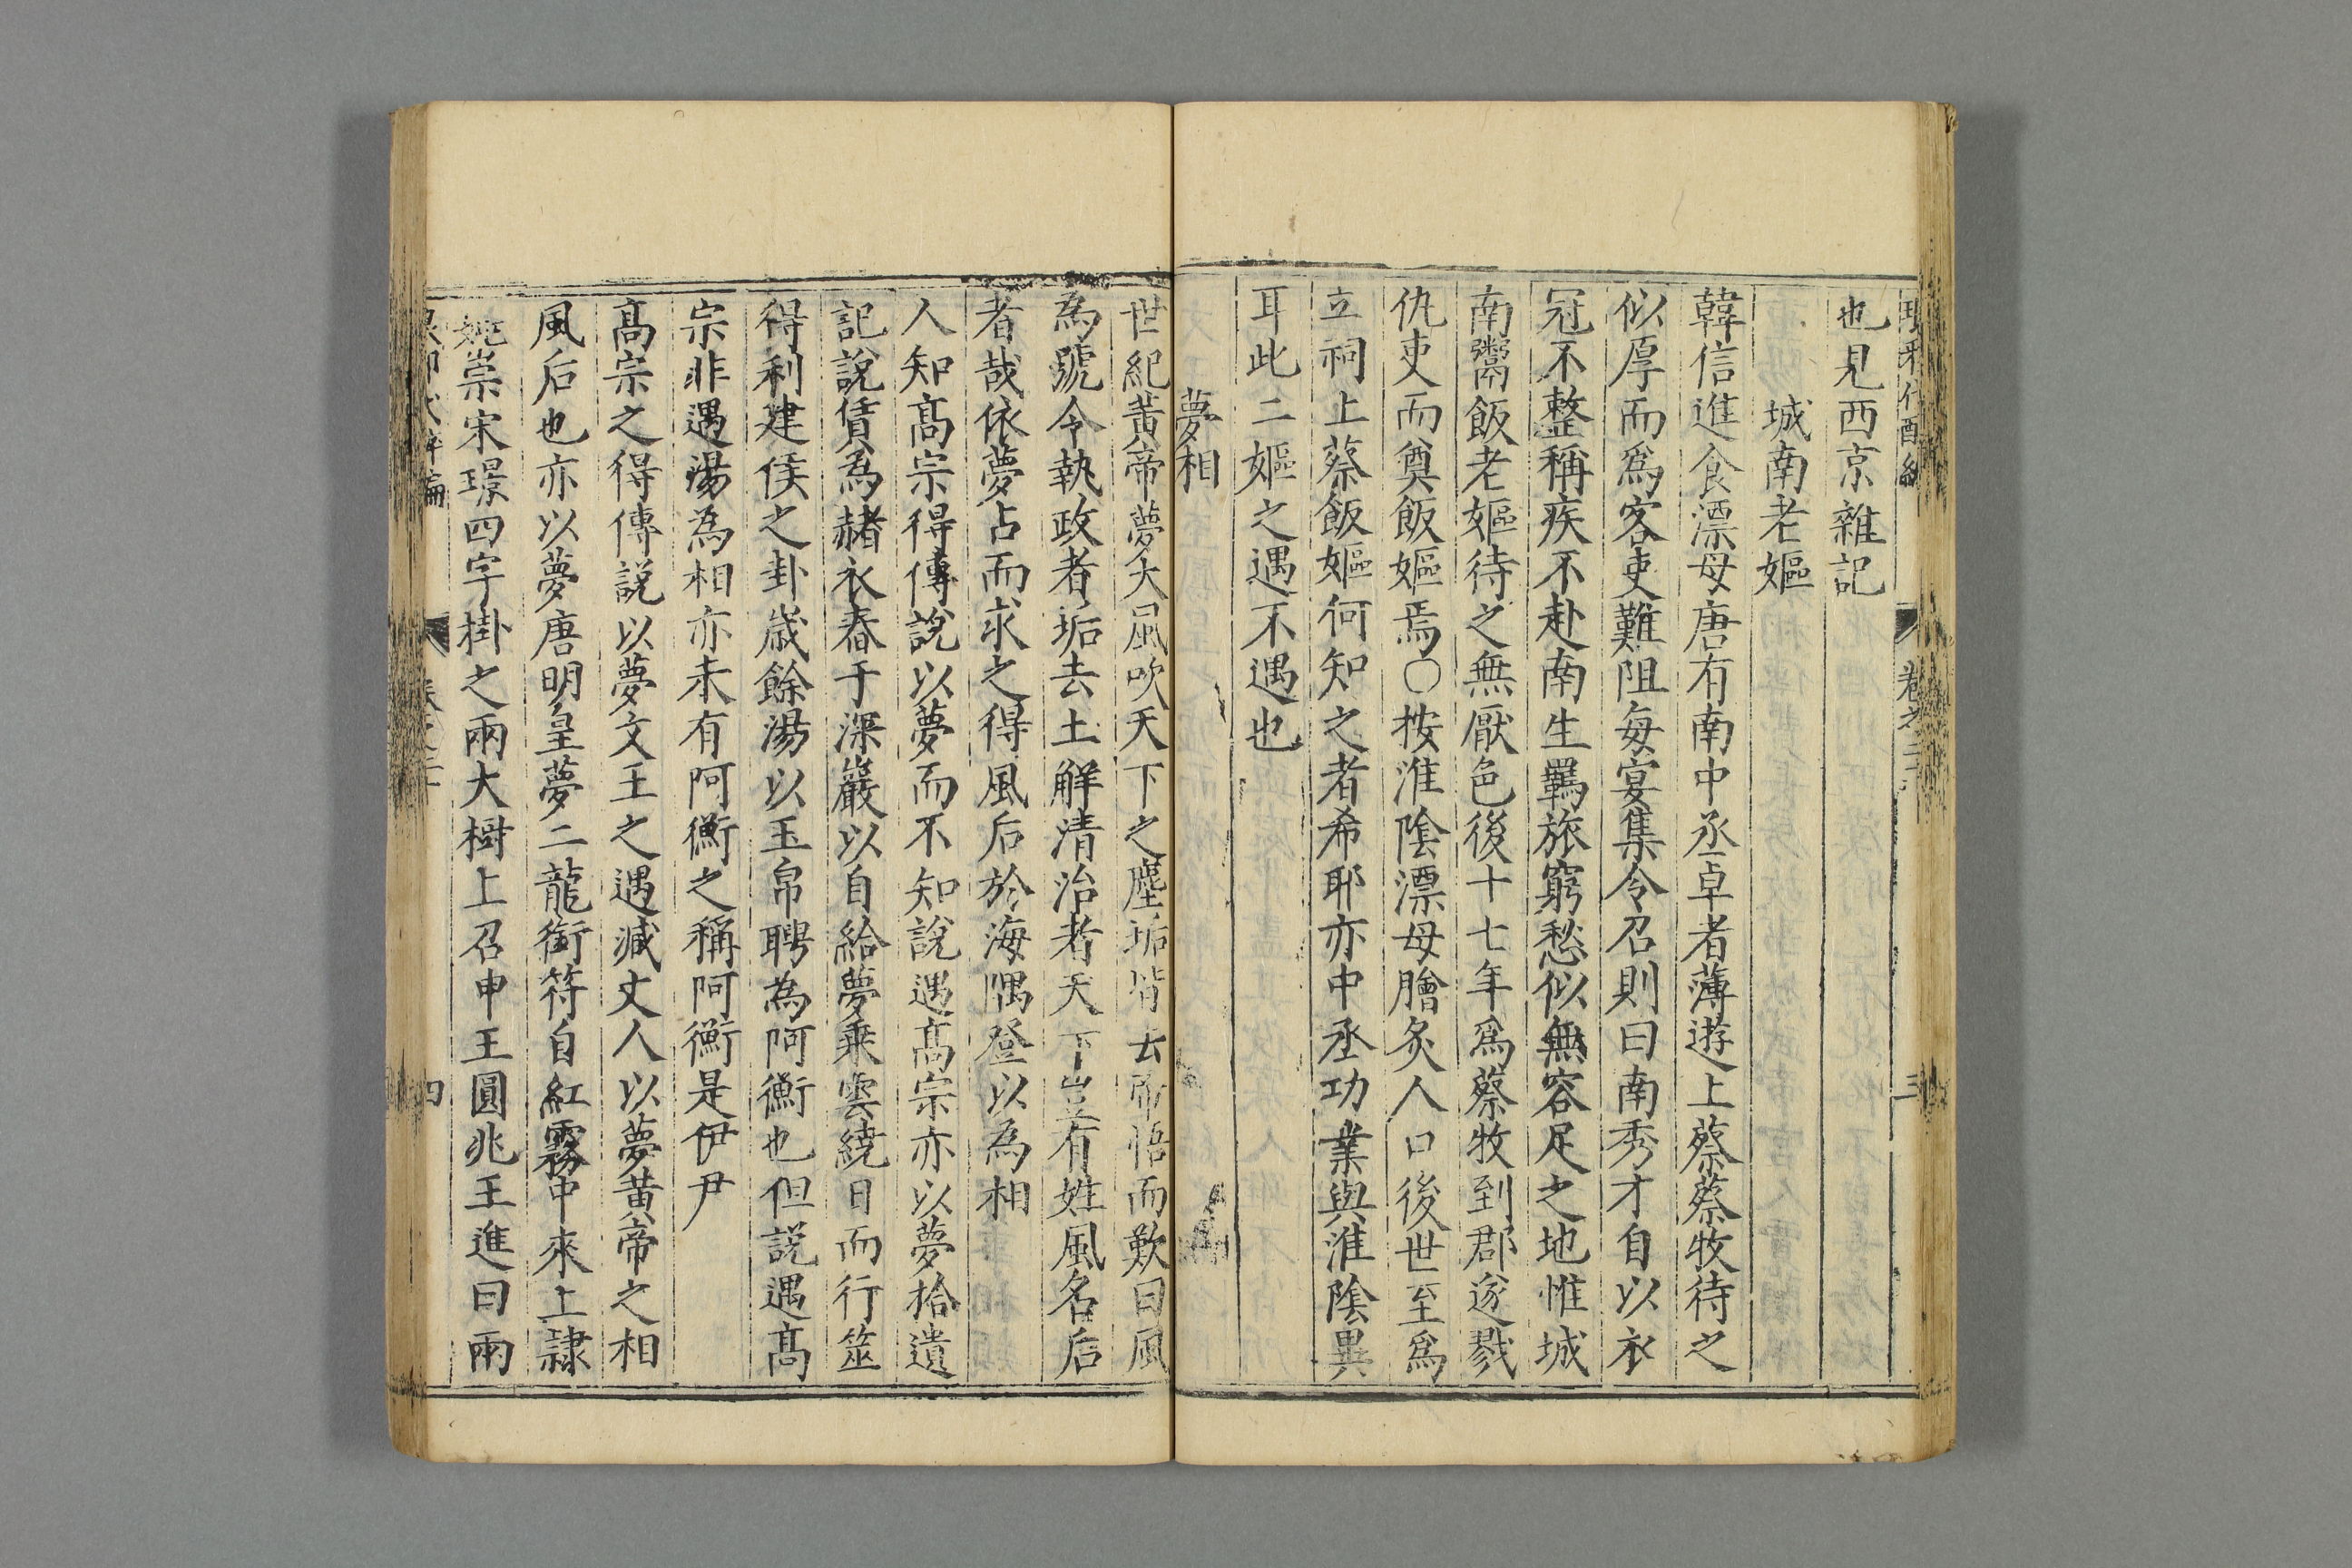 也見西京雜記
城南老嫗
韓信進食漂母唐有南中丞卓者薄遊上蔡蔡牧待之
似厚而爲客吏難阻每宴集令召則曰南秀才自以衣
冠不整稱疾不赴南生羇旅窮愁似無容足之地惟城
南鬻飯老嫗待之無厭色後十七年爲蔡牧到郡遂戮
仇吏而奠飯嫗焉○按淮陰漂母膾炙人口後世至爲
立祠上蔡飯嫗何知之者希耶亦中丞功業與淮陰異
耳此二嫗之遇不遇也
夢相
世紀黃帝夢大風吹天下之塵垢皆去帝悟而歎曰風
為號令執政者垢去土解清治者天下豈有姓風名后
者哉依夢占而求之得風后於海隅登以為相
人知高宗得傳說以夢而不知說遇高宗亦以夢拾遺
記說賃為赭衣舂于深巖以自給夢乘雲繞日而行筮
得利建侯之卦歲餘湯以玉帛聘為阿衡也但說遇高
宗非遇湯為相亦未有阿衡之稱阿衡是伊尹
高宗之得傳說以夢文王之遇減丈人以夢黃帝之相
風后也亦以夢唐明皇夢二龍銜符自紅霧中來上隷
姚崇宋璟四字掛之兩大樹上召申王圓兆王進曰兩
卷之二十
四